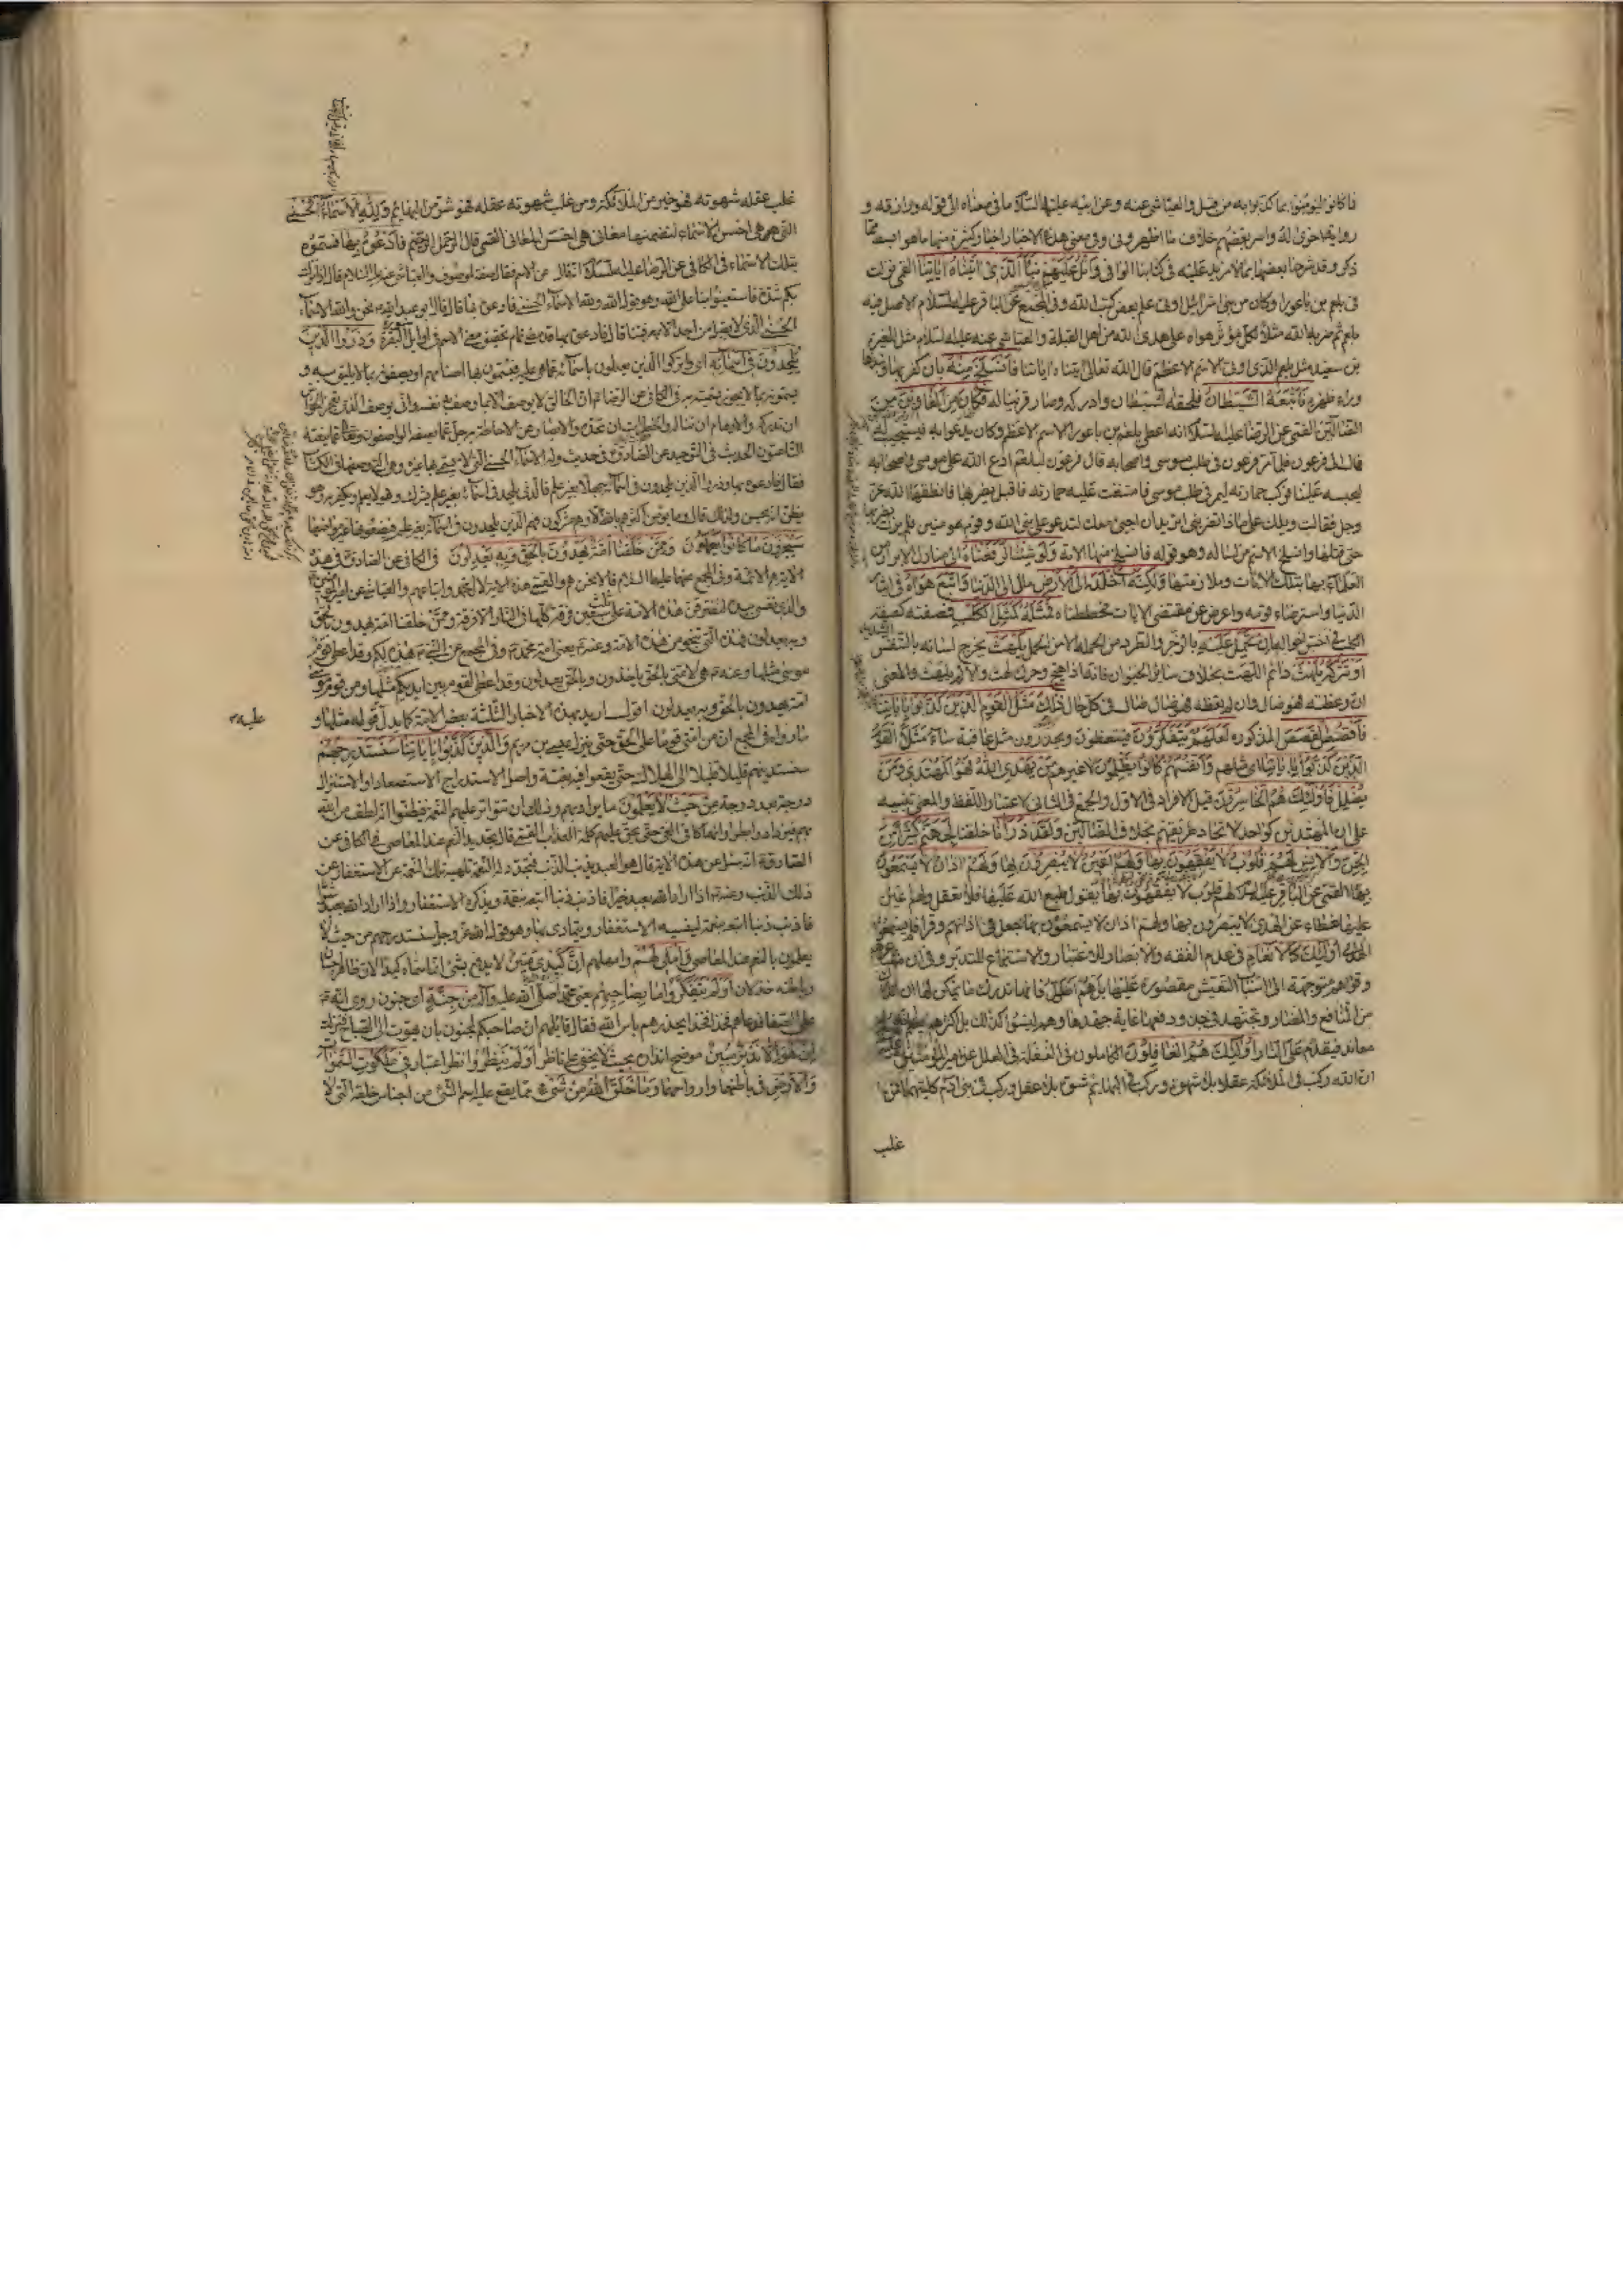 فما كانوا ليؤمنوا بما كذبوا به من قبل والعياشي عنه وعن ابيه عليهما السلام ما في معناه الى قوله ورازقه و
ذكر وقد شرحنا بعضها بما لا مزيد عليه في كتابنا الوافي واتل عليهم نبأ الذي اتيناه اياتنا القمي نزلت
في بلعم بن باعورا وكان من بني اسرائيل اوتي علم بعض كتب الله وفي المجمع عن الباقر عليه السلام الاصل فيه
بلعم ثم ضربه الله مثلا لكل مؤثر هواه على هدى الله من اهل القبلة والعياشي عنه عليه السلام مثل المغيرة
بن سعيد مثل بلعم الذي اوتي الاسم الاعظم قال الله تعالى اتيناه اياتنا فانسلخ منها بان كفر بها ونبذها
وراء ظهره فاتبعه الشيطان فلحقه الشيطان وادركه وصار قرينا له فكان من الغاوين من
الضالين القمي عن الرضا عليه السلام انه اعطي بلعم بن باعورا الاسم الاعظم وكان يدعو به فيستجيب له
فمال الى فرعون فلما مر فرعون في طلب موسى واصحابه قال فرعون لبلعم ادع الله على موسى واصحابه
ليحبسه علينا فركب حمارته ليمر في طلب موسى فامتنعت عليه حمارته فاقبل يضربها فانطقها الله عز
وجل فقالت ويلك على ماذا تضربني اتريد ان اجيئ معك لتدعو على نبي الله وقوم مؤمنين فلم يزل يضربها
حتى قتلها وانسلخ الاسم من لسانه وهو قوله فانسلخ منها الاية ولو شئنا لرفعناه الى منازل الابرار من
العلماء بها بتلك الايات وملازمتها ولكنه اخلد الى الارض مال الى الدنيا واتبع هواه في ايثار
الدنيا واسترضاء قومه واعرض عن مقتضى الايات فحططناه فمثله كمثل الكلب فصفته كصفة
الكلب في اخس احواله ان تحمل عليه بالزجر والطرد من الحملة لا من الحمل يلهث يخرج لسانه بالتنفس
او تتركه يلهث دائم اللهث بخلاف سائر الحيوان فانه اذا هيج وحرك لهث والا لم يلهث والمعنى
ان وعظته فهو ضال وان لم تعظه فهو ضال ضال في كل حال ذلك مثل القوم الذين كذبوا باياتنا
فاقصص القصص المذكورة لعلهم يتفكرون فيتعظون ويحذرون مثل عاقبته ساء مثلا القوم
الذين كذبوا باياتنا اي مثلهم وانفسهم كانوا يظلمون لا غيرهم من يهدي الله فهو المهتدي ومن
يضلل فاولئك هم الخاسرون قيل الافراد في الاول والجمع في الثاني لاعتبار اللفظ والمعنى تنبيه
على ان المهتدين كواحد لاتحاد طريقهم بخلاف الضالين ولقد ذرأنا خلقنا لجهنم كثيرا من
الجن والانس لهم قلوب لا يفقهون بها ولهم اعين لا يبصرون بها ولهم اذان لا يسمعون
بها القمي عن الباقر عليه السلام لهم قلوب لا يفقهون بها يقول طبع الله عليها فلا تعقل ولهم اعين
عليها غطاء عن الهدى لا يبصرون بها ولهم اذان لا يسمعون بها جعل في اذانهم وقرا فلم يسمعوا
الهدى اولئك كالانعام في عدم الفقه والابصار للاعتبار والاستماع للتدبر وفي ان مشاعرهم
وقواهم متوجهة الى اسباب التعيش مقصورة عليها بل هم اضل فانها تدرك ما يمكن لها ان تدرك
من المنافع والمضار وتجتهد في جذبها ودفعها غاية جهدها وهم ليسوا كذلك بل اكثرهم يعلم انه
معاند فيقدم على النار اولئك هم الغافلون الكاملون في الغفلة في العلل عن امير المؤمنين عليه
ان الله ركب في الملائكة عقلا بلا شهوة وركب في البهائم شهوة بلا عقل وركب في بني ادم كلتيهما فمن
غلب
غلب عقله شهوته فهو خير من الملائكة ومن غلب شهوته عقله فهو شر من البهائم ولله الاسماء الحسنى
التي هي احسن الاسماء لتضمنها معاني هي احسن المعاني القمي قال الرحمن الرحيم فادعوه بها فسموه
بتلك الاسماء في الكافي عن الرضا عليه السلام انه سئل عن الاسم فقال صفة لموصوف والعياشي عنه عليه السلام قال اذا نزلت
بكم شدة فاستعينوا بنا على الله وهو قول الله ولله الاسماء الحسنى فادعوه بها قال قال ابو عبد الله نحن والله الاسماء
الحسنى الذي لا يقبل من احد الا بمعرفتنا قال فادعوه بها وذروا الذين
يلحدون في اسمائه اي واتركوا الذين يعدلون باسمائه عما هي عليه فيسمون بها اصنامهم او يصفونه بما لا يليق به و
يسمونه بما لا يجوز تسميته به في الكافي عن الرضا ان الخالق لا يوصف الا بما وصف به نفسه وانى يوصف الذي تعجز الحواس
ان تدركه والاوهام ان تناله والخطرات ان تحده والابصار عن الاحاطة به جل عما يصفه الواصفون وتعالى عما ينعته
الناعتون الحديث في التوحيد عن الصادق في حديث وله الاسماء الحسنى التي لا يسمى بها غيره وهي التي وصفها في الكتاب
فقال فادعوه بها وذروا الذين يلحدون في اسمائه جهلا بغير علم فالذي يلحد في اسمائه بغير علم يشرك وهو لا يعلم ويكفر به وهو
يظن انه يحسن ولذلك قال وما يؤمن اكثرهم بالله الا وهم مشركون فهم الذين يلحدون في اسمائه بغير علم فيضعونها غير مواضعها
سيجزون ما كانوا يعملون وممن خلقنا امة يهدون بالحق وبه يعدلون في الكافي عن الصادق في هذه
الاية هم الائمة وفي المجمع عنهما عليهما السلام قالا نحن هم والقمي هذه الاية لال محمد واتباعهم والعياشي عن امير المؤمنين
والذي نفسي بيده لتفترقن هذه الامة على ثلث وسبعين فرقة كلها في النار الا فرقة وممن خلقنا امة يهدون بالحق
وبه يعدلون فهذه التي تنجو من هذه الامة وعنه يعني امة محمد وفي المجمع عن النبي هذه لكم وقد اعطي قوم
موسى مثلها وعنه هي لامتي بالحق ياخذون وبالحق يعطون وقد اعطي القوم بين ايديكم مثلها ومن قوم موسى
امة يهدون بالحق وبه يعدلون اقول اريد بهذه الاخبار الثلثة بعض الامة كما يدل قوله مثلها و
ما رواه في المجمع ان من امتي قوما على الحق حتى ينزل عيسى بن مريم والذين كذبوا باياتنا سنستدرجهم
سنستدنيهم قليلا قليلا الى الهلاك حتى يقعوا فيه بغتة واصل الاستدراج الاستصعاد او الاستنزال
درجة بعد درجة من حيث لا يعلمون ما يراد بهم وذلك ان تتواتر عليهم النعم فيظنوا انه لطف من الله
بهم فيزدادوا بطرا وانهماكا في الغي حتى يحق عليهم كلمة العذاب القمي قال تجديد النعم عند المعاصي في الكافي عن
الصادق انه سئل عن هذه الاية قال هو العبد يذنب الذنب فتجدد له النعمة تلهيه تلك النعمة عن الاستغفار من
ذلك الذنب وعنه اذا اراد الله بعبد خيرا فاذنب ذنبا اتبعه بنقمة ويذكره الاستغفار واذا اراد الله بعبد شرا
فاذنب ذنبا اتبعه بنعمة لينسيه الاستغفار ويتمادى بها وهو قول الله عز وجل سنستدرجهم من حيث لا
يعلمون بالنعم عند المعاصي واملي لهم وامهلهم ان كيدي متين لا يدفع بشئ انما سماه كيدا لان ظاهره احسان
وباطنه خذلان اولم يتفكروا ما بصاحبهم يعني محمدا صلى الله عليه وآله من جنة اي جنون روي انه
على الصفا فدعاهم فخذا فخذا يحذرهم باس الله فقال قائلهم ان صاحبكم لمجنون بات يصوت الى الصباح فنزلت
ان هو الا نذير مبين موضح انذاره بحيث لا يخفى على ناظر اولم ينظروا نظر اعتبار في ملكوت السموات
والارض في باطنها وارواحها وما خلق الله من شئ مما يقع عليه اسم الشئ من اجناس خلقه التي لا
عليه